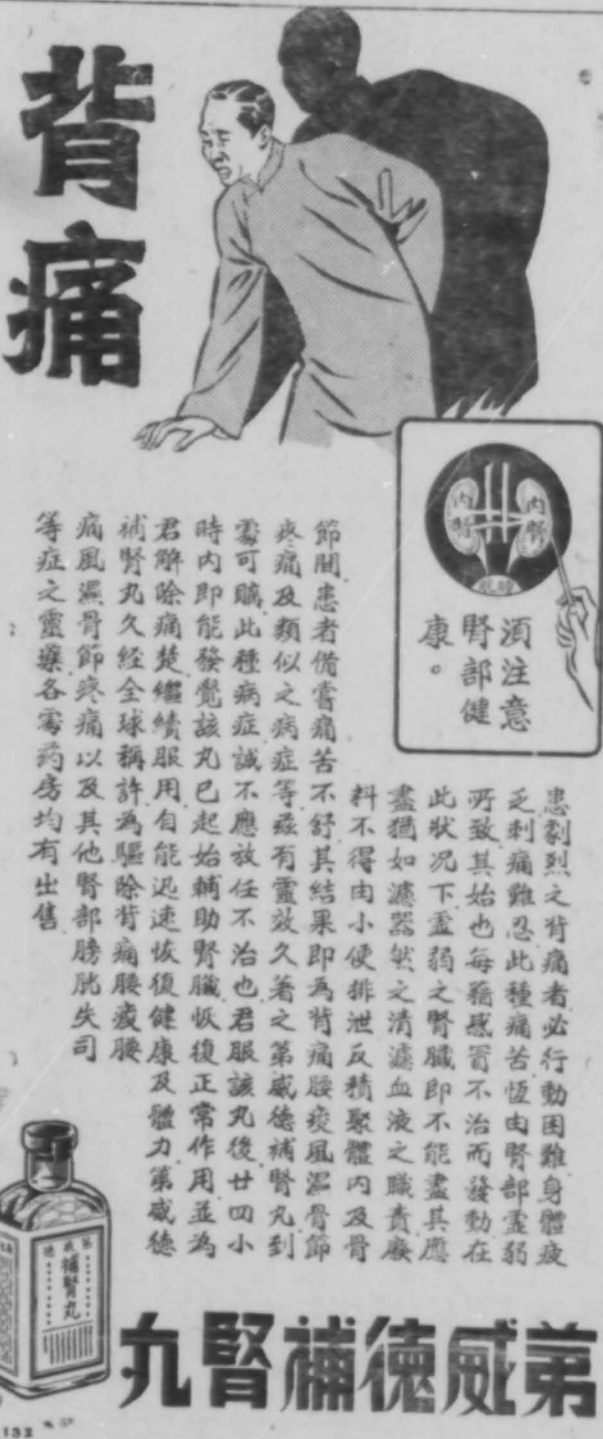 背痛
內腎
內腎
膀胱
須注意
腎部健
康。
患劇烈之背痛者必行動困難身體疲
乏刺痛難忍此種痛苦恆由腎部虛弱
所致其始也每藉感冒不治而發動在
此狀況下虛弱之腎臟即不能盡其應
盡猶如濾器然之清濾血液之職責廢
料不得由小便排泄反積聚體內及骨
節間患者備嘗痛苦不舒其結果即為背痛腰痠風濕骨節
疼痛及類似之病症等茲有靈效久著之第威德補腎丸到
處可購此種病症誠不應放任不治也君服該丸後廿四小
時內即能發覺該丸已起始輔助腎臟恢復正常作用並為
君解除痛楚繼續服用自能迅速恢復健康及體力第威德
補腎丸久經全球稱許為驅除背痛腰痠腰
痛風濕骨節疼痛以及其他腎部膀胱失司
等症之靈藥各處药房均有出售
第威德
補腎丸
第威德補腎丸
132